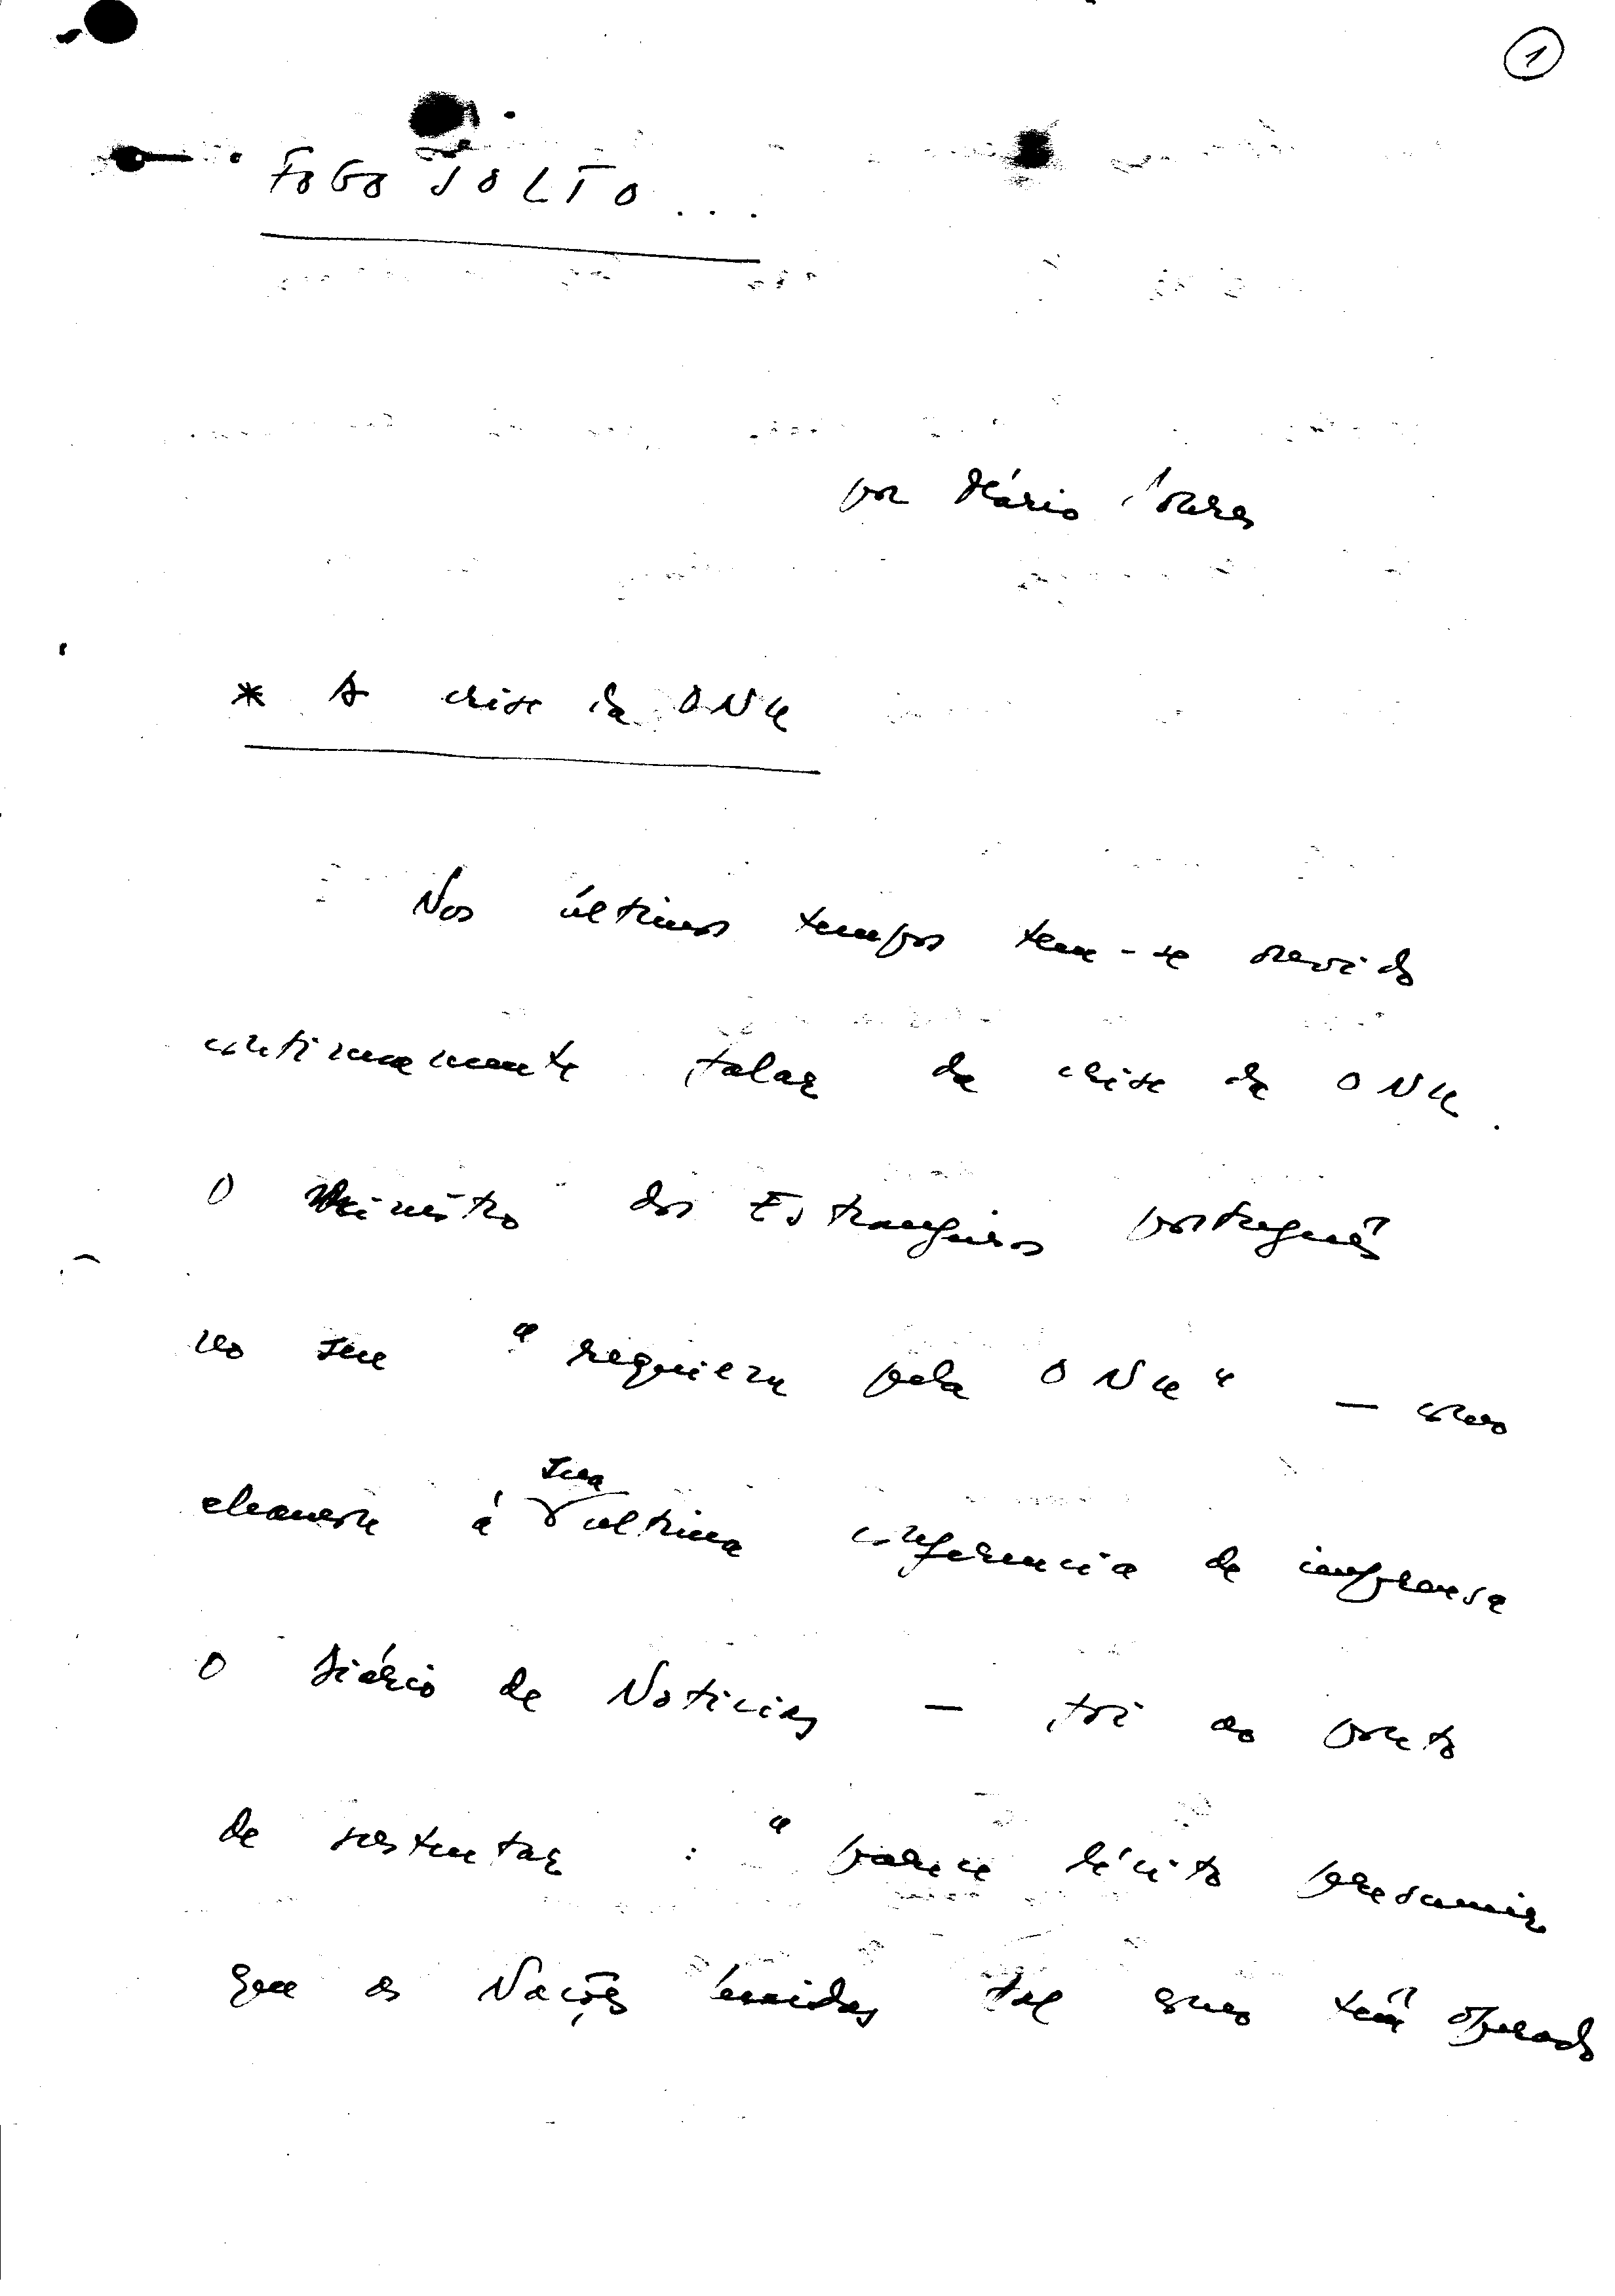 1
FOGO SOLTO...
por Mário Soares
* A crise da ONU
Nos últimos tempos tem-se ouvido
continuamente falar da crise da ONU.
O Ministro dos Estrangeiros português
no seu "requiem pela ONU" — como
chamou à sua ultima conferencia de imprensa
o Diário de Noticias — foi ao ponto
de sustentar : "parece lícito presumir
que as Nações Unidas tal como têm operado